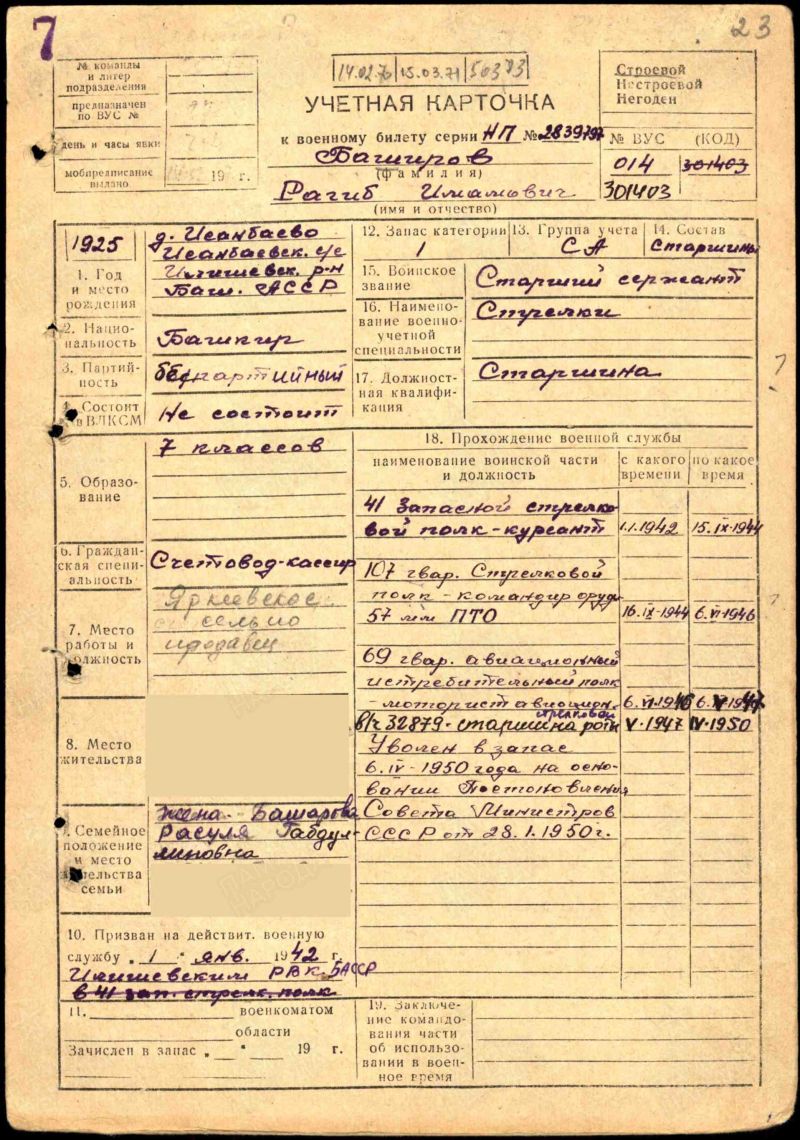 7
23
14.02.76 15.03.71 50373
№ команды
и литер
подразделения
предназначен
по ВУС №
день и часы явки
мобпредписание
выдано
19 г.
УЧЕТНАЯ КАРТОЧКА
к военному билету серии НП № 2839797
Башаров
(фамилия)
Рагиб Имамович
(имя и отчество)
Строевой
Нестроевой
Негоден
№ ВУС (КОД)
014 301403
301403
1925
1. Год
и место
рождения
д. Исанбаево
Исанбаевск. с/с
Илишевск. р-н
Баш. АССР
2. Национальность
Башкир
3. Партий-
ность
беспартийный
4. Состоит
в ВЛКСМ
Не состоит
5. Образо-
вание
7 классов
6. Граждан-
ская специ-
альность
Счетовод-кассир
7. Место
работы и
должность
Яркеевское
сельпо
продавец
8. Место
жительства
9. Семейное
положение
и место
жительства
семьи
жена - Башарова
Расуля Габдул-
миновна
10. Призван на действит. военную
службу „1“ янв. 1942 г.
Илишевским РВК БАССР
в 41 зап. стрелк. полк
11. военкоматом
области
Зачислен в запас „ “ 19 г.
12. Запас категории
1
13. Группа учета
СА
14. Состав
Старшины
15. Воинское
звание
Старший сержант
16. Наимено-
вание военно-
учетной
специальности
Стрелки
17. Должност-
ная квалифи-
кация
Старшина
18. Прохождение военной службы
наименование воинской части
и должность
с какого
времени
по какое
время
41 Запасной стрелко-
вой полк-курсант 1.1.1942 15.IX.1944
107 гвар. Стрелковой
полк - командир оруд.
57 мм ПТО 16.IX-1944 6.VI-1946
69 гвар. авиационный
истребительный полк
- моторист авиацион. 6.VI-1946 6.V-1947
стрелковой
в/ч 32879 - старшина роты V-1947 IV-1950
Уволен в запас
6.IV-1950 года на осно-
вании Постановления
Совета Министров
СССР от 28.1.1950г.
19. Заключе-
ние командо-
вания части
об использо-
вании в воен-
ное время